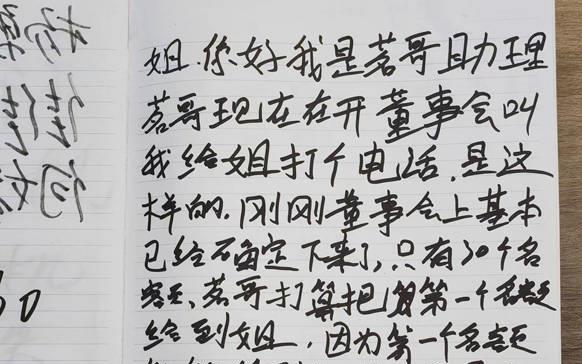 姐.你好我是茗哥助理
茗哥现在在开董事会叫
我给姐打个电话.是这
样的.刚刚董事会上基本
已经确定下来了,只有30个名
额.茗哥打算把第一个名额
给到姐,因为第一个名额